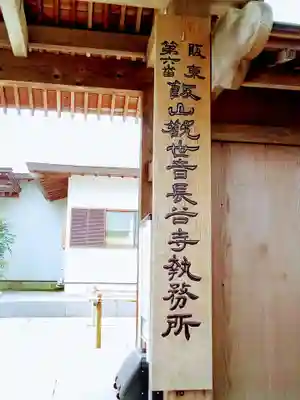 阪東
第六番
飯山觀世音長谷寺執務所